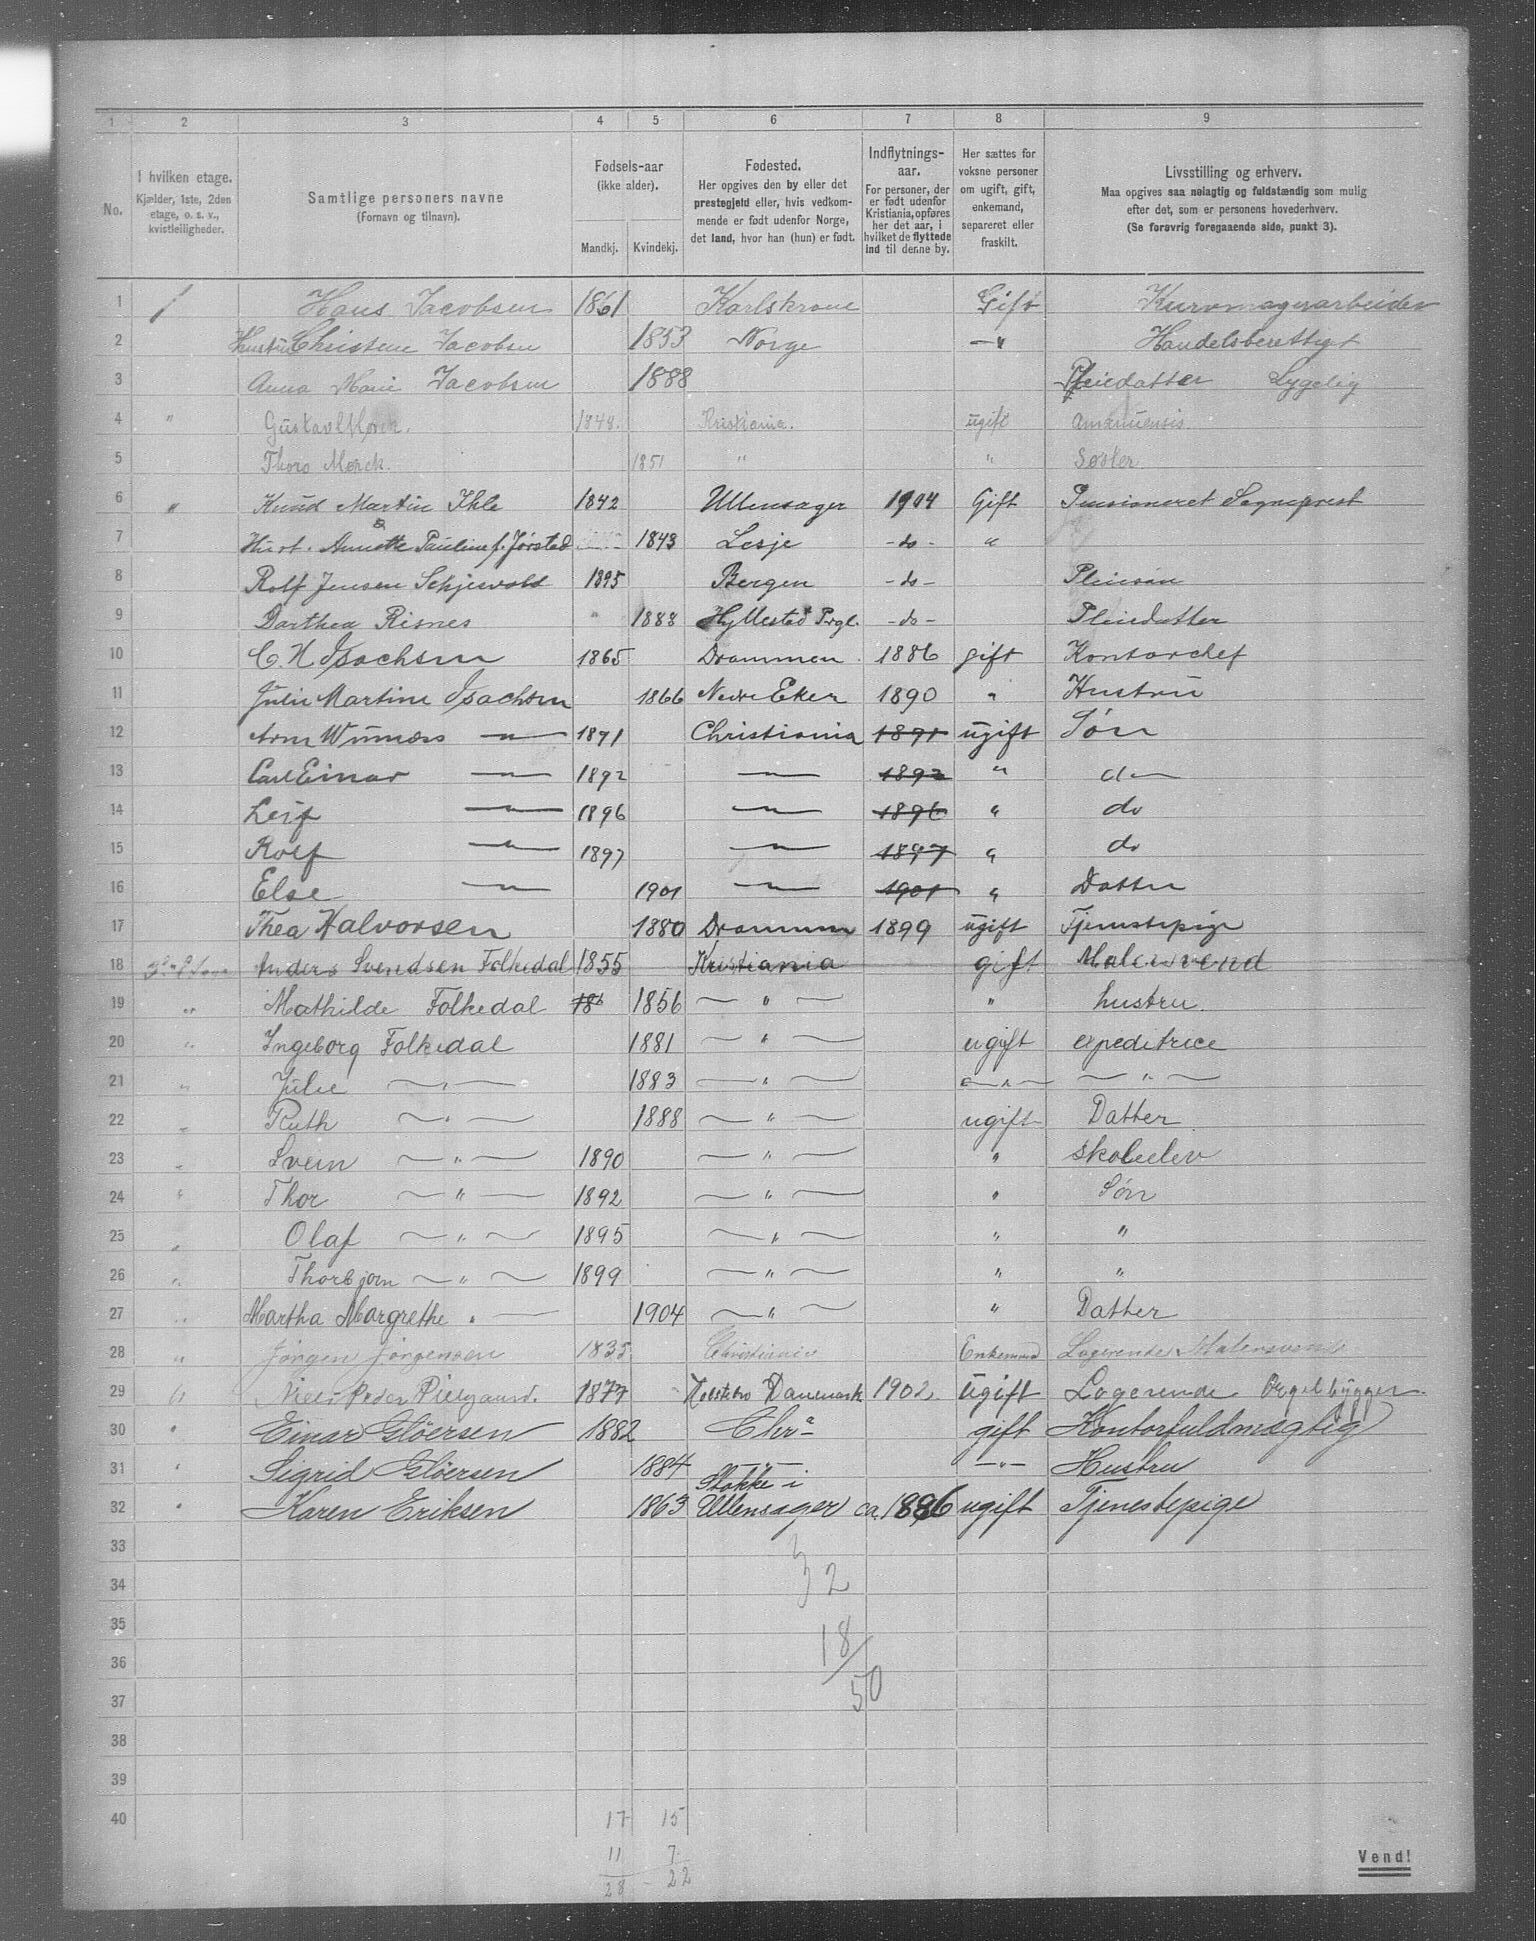 1 2 3 4 5 6 7 8 9
No.
I hvilken etage.
Kjælder, 1ste, 2den etage, o. s. v., kvistleiligheder.
Samtlige personers navne
(Fornavn og tilnavn).
Fødsels-aar
(ikke alder).
Mandkj. Kvindekj.
Fødested.
Her opgives den by eller det prestegjeld eller, hvis vedkommende er født udenfor Norge, det land, hvor han (hun) er født.
Indflytnings-aar.
For personer, der er født udenfor Kristiania, opføres her det aar, i hvilket de flyttede ind til denne by.
Her sættes for voksne personer om ugift, gift, enkemand, separeret eller fraskilt.
Livsstilling og erhverv.
Maa opgives saa nøiagtig og fuldstændig som mulig efter det, som er personens hovederhverv.
(Se forøvrig foregaaende side, punkt 3).
1 / Hans Jacobsen 1861 Karlskrone Gift Kurvmagerarbeider
2 Hustru Christene Jacobsen 1853 Norge — " Handelsberettiget
3 Anna Marie Jacobsen 1888 Pleiedatter Sygelig
4 " Gustav Mørch. 1848. Kristiania. ugift Amanuensis.
5 Thora Mørck. 1851 " " Søster
6 " Knud Martin Ihle 1842 Ullensager 1904 Gift Pensioneret Sogneprest
7 Hust. Annette Pauline f. Jørstad 1843 Lesje - do - "
8 Rolf Jensen Schjevold 1895 Bergen - do - Pleiesøn
9 Darthea Risnes " 1888 Hyllestad Prgl. - do - Pleiedatter
10 C. H. Isachsen 1865 Drammen 1886 gift Kontorchef
11 Julie Martine Isachsen 1866 Nedre Eker 1890 " Hustru
12 — " — 1891 Christiania 1891 ugift Søn
13 Carl Einar — " — 1892 — " — 1892 " do
14 Leif — " — 1896 — " — 1896 " do
15 Rolf — " — 1897 — " — 1897 " do
16 Else — " — 1901 — " — 1901 " Datter
17 Thea Halvorsen 1880 Drammen 1899 ugift Tjenestepige
18 Anders Svendsen Folkedal 1855 Kristiania gift Malersvend
19 " Mathilde Folkedal 186 1856 — " — " hustru.
20 " Ingeborg Folkedal 1881 — " — ugift expeditrice
21 " Julie — " — 1883 — " — — " — — " —
22 " Ruth — " — 1888 — " — ugift Datter
23 " Svein — " — 1890 — " — " skoleelev
24 " Thor — " — 1892 — " — " Søn
25 " Olaf — " — 1895 — " — " "
26 " Thorbjørn — " — 1899 — " — " "
27 " Martha Margrethe " — 1904 — " — " Datter
28 " Jørgen Jørgensen 1835 Christiania Enkemand Logerende Malersvend
29 " Niels Peder 1877 Holstebro Danemark 1902. ugift Logerende Orgelbygger.
30 " Einar Gløersen 1882 Chra gift Kontorfuldmægtig
31 " Sigrid Gløersen 1884 — " — — " — Hustru
32 " Karen Eriksen 1863 Stokke i Ullensager ca. 1886 ugift Tjenestepige
33
34
35
36
37
38
39
40
32
18
/
50
17 15
11 7
28 - 22
Vend!